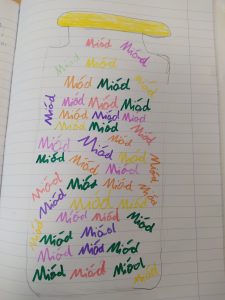 Miód Miód
Miód Miód
Miód Miód
Miód Miód Miód
Miód Miód Miód Miód
Miód Miód Miód
Miód Miód Miód
Miód Miód Miód Miód
Miód Miód Miód Miód
Miód Miód Miód
Miód Miód Miód Miód
Miód Miód Miód
Miód Miód Miód Miód